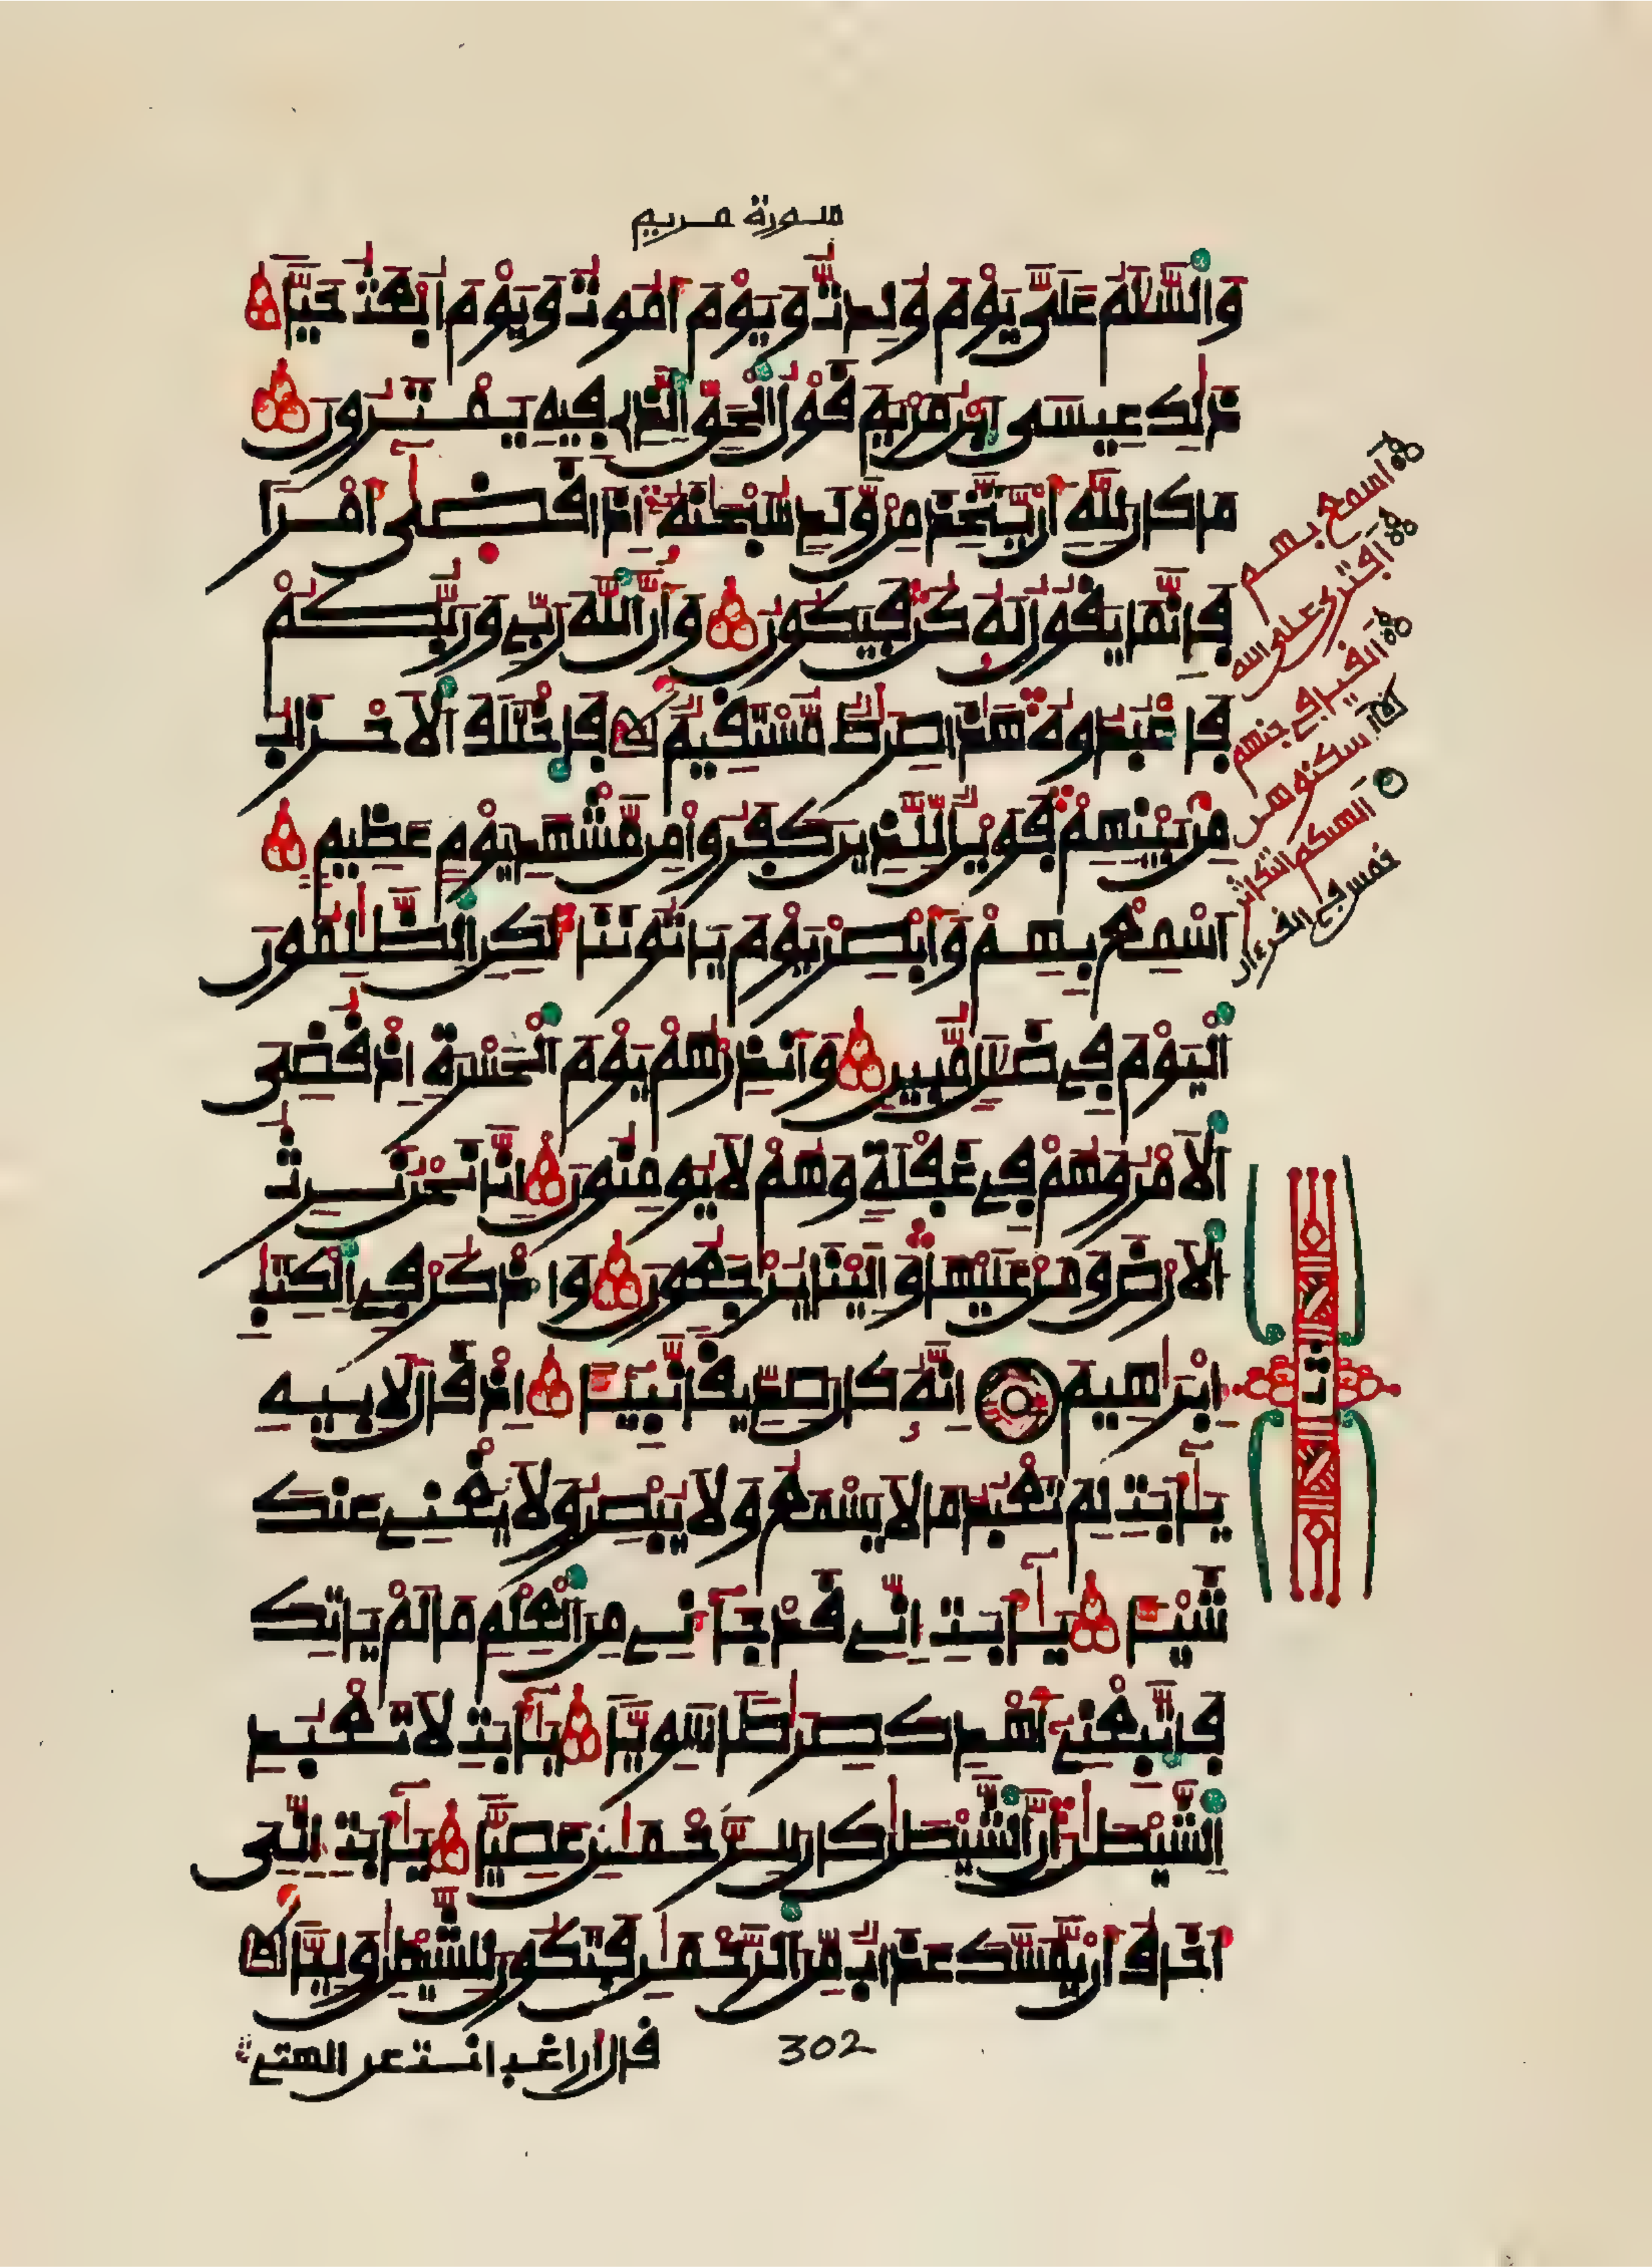 سورة مريم
وَالسَّلَٰمُ عَلَيَّ يَوْمَ وُلِدتُّ وَيَوْمَ أَمُوتُ وَيَوْمَ أُبْعَثُ حَيّاً
ذَٰلِكَ عِيسَى ابْنُ مَرْيَمَ قَوْلُ الْحَقِّ الَّذِے فِيهِ يَمْتَرُونَ
مَا كَانَ لِلَّهِ أَنْ يَّتَّخِذَ مِنْ وَّلَدٍ سُبْحَٰنَهُ إِذَا قَضَىٰ أَمْراً
فَإِنَّمَا يَقُولُ لَهُ كُن فَيَكُونُ وَأَنَّ اللَّهَ رَبِّے وَرَبُّكُمْ
فَاعْبُدُوهُ هَٰذَا صِرَٰطٌ مُّسْتَقِيمٌ فَاخْتَلَفَ الَاحْزَابُ
مِنۢ بَيْنِهِمْ فَوَيْلٌ لِّلَّذِينَ كَفَرُوا مِن مَّشْهَدِ يَوْمٍ عَظِيمٍ
أَسْمِعْ بِهِمْ وَأَبْصِرْ يَوْمَ يَاتُونَنَا لَٰكِنِ الظَّٰلِمُونَ
الْيَوْمَ فِے ضَلَٰلٍ مُّبِينٍ وَأَنذِرْهُمْ يَوْمَ الْحَسْرَةِ إِذْ قُضِيَ
الَامْرُ وَهُمْ فِے غَفْلَةٍ وَهُمْ لَا يُومِنُونَ إِنَّا نَحْنُ نَرِثُ
الَارْضَ وَمَنْ عَلَيْهَا وَإِلَيْنَا يُرْجَعُونَ وَاذْكُرْ فِے الْكِتَٰبِ
إِبْرَٰهِيمَ إِنَّهُ كَانَ صِدِّيقاً نَّبِيٓـٔاً إِذْ قَالَ لِأَبِيهِ
يَٰٓأَبَتِ لِمَ تَعْبُدُ مَا لَا يَسْمَعُ وَلَا يُبْصِرُ وَلَا يُغْنِے عَنكَ
شَيْـٔاً يَٰٓأَبَتِ إِنِّے قَدْ جَآءَنِے مِنَ الْعِلْمِ مَا لَمْ يَاتِكَ
فَاتَّبِعْنِے أَهْدِكَ صِرَٰطاً سَوِيّاً يَٰٓأَبَتِ لَا تَعْبُدِ
الشَّيْطَٰنَ إِنَّ الشَّيْطَٰنَ كَانَ لِلرَّحْمَٰنِ عَصِيّاً يَٰٓأَبَتِ إِنِّيَ
أَخَافُ أَنْ يَّمَسَّكَ عَذَابٌ مِّنَ الرَّحْمَٰنِ فَتَكُونَ لِلشَّيْطَٰنِ وَلِيّاً
قال أراغب أنت عن الهتے
302
أسمع بهم
أفترى على الله
ألقيا في جهنم
أسكنوهن
ألهيكم التكاثر
خمس في القرءان